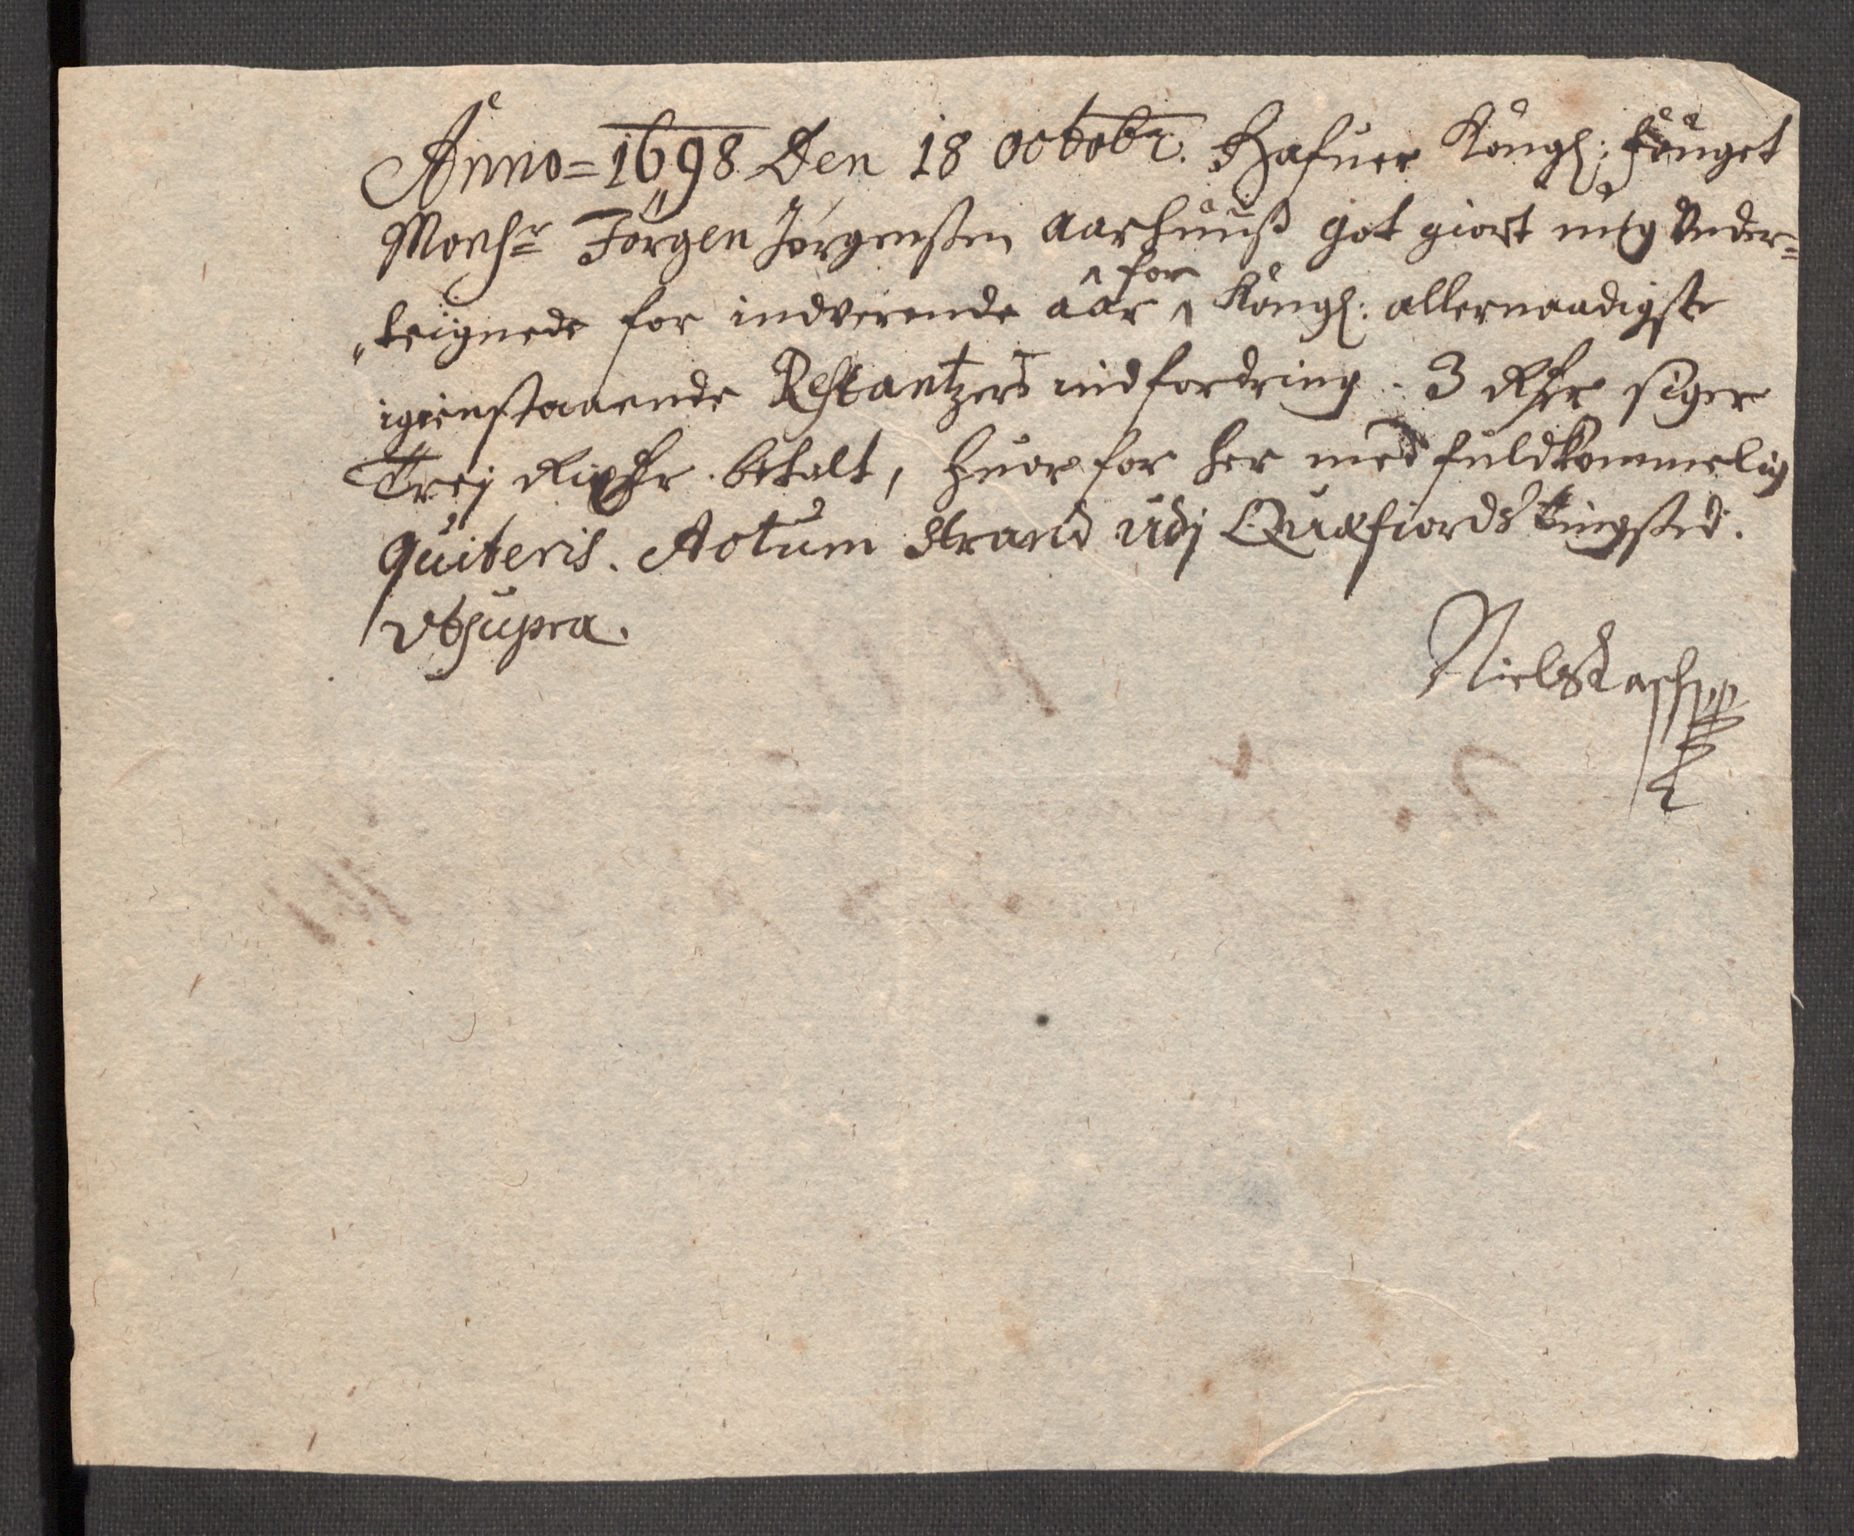 Anno= 1698 Den 18 octobr. Hafuer Kongl: fouget
Monsr Jörgen Jørgenssen aarhuuss got giort mig Vnder=
teignede for indverende aar for Kongl: allernaadigste
igienstaaende Restantzers indfordring. 3 Rdr siger
Trej Rixdr. betalt, huorfor her med fuldkommelig
quiteris. Actum Strand udj Quæfiords tingsted.
Vtsupra.
Niels